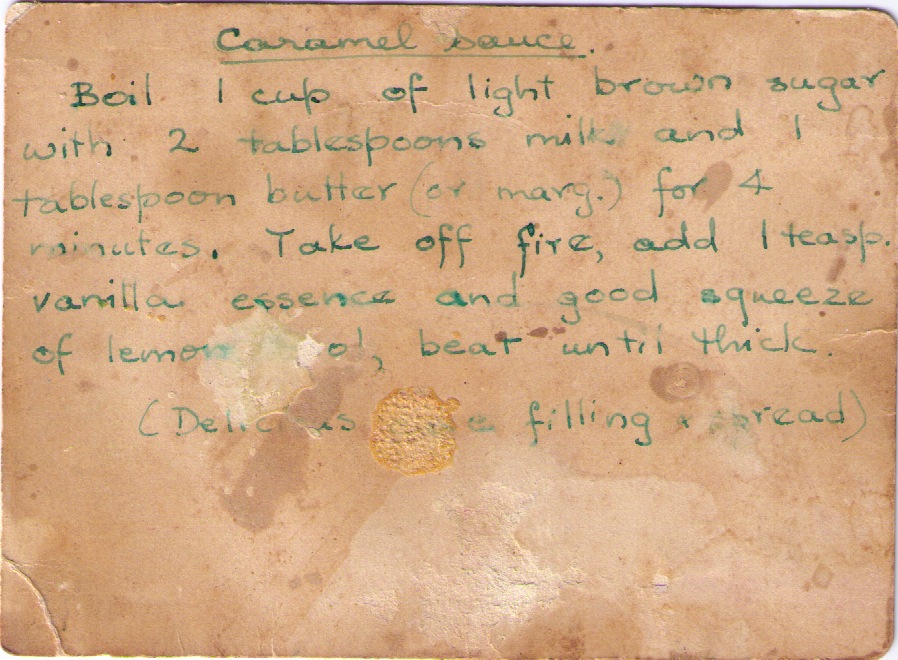 Caramel sauce.
Boil 1 cup of light brown sugar
with 2 tablespoons milk and 1
tablespoon butter (or marg.) for 4
minutes. Take off fire, add 1 teasp.
vanilla essence and good squeeze
of lemon, beat until thick.
(Delicious filling & spread)